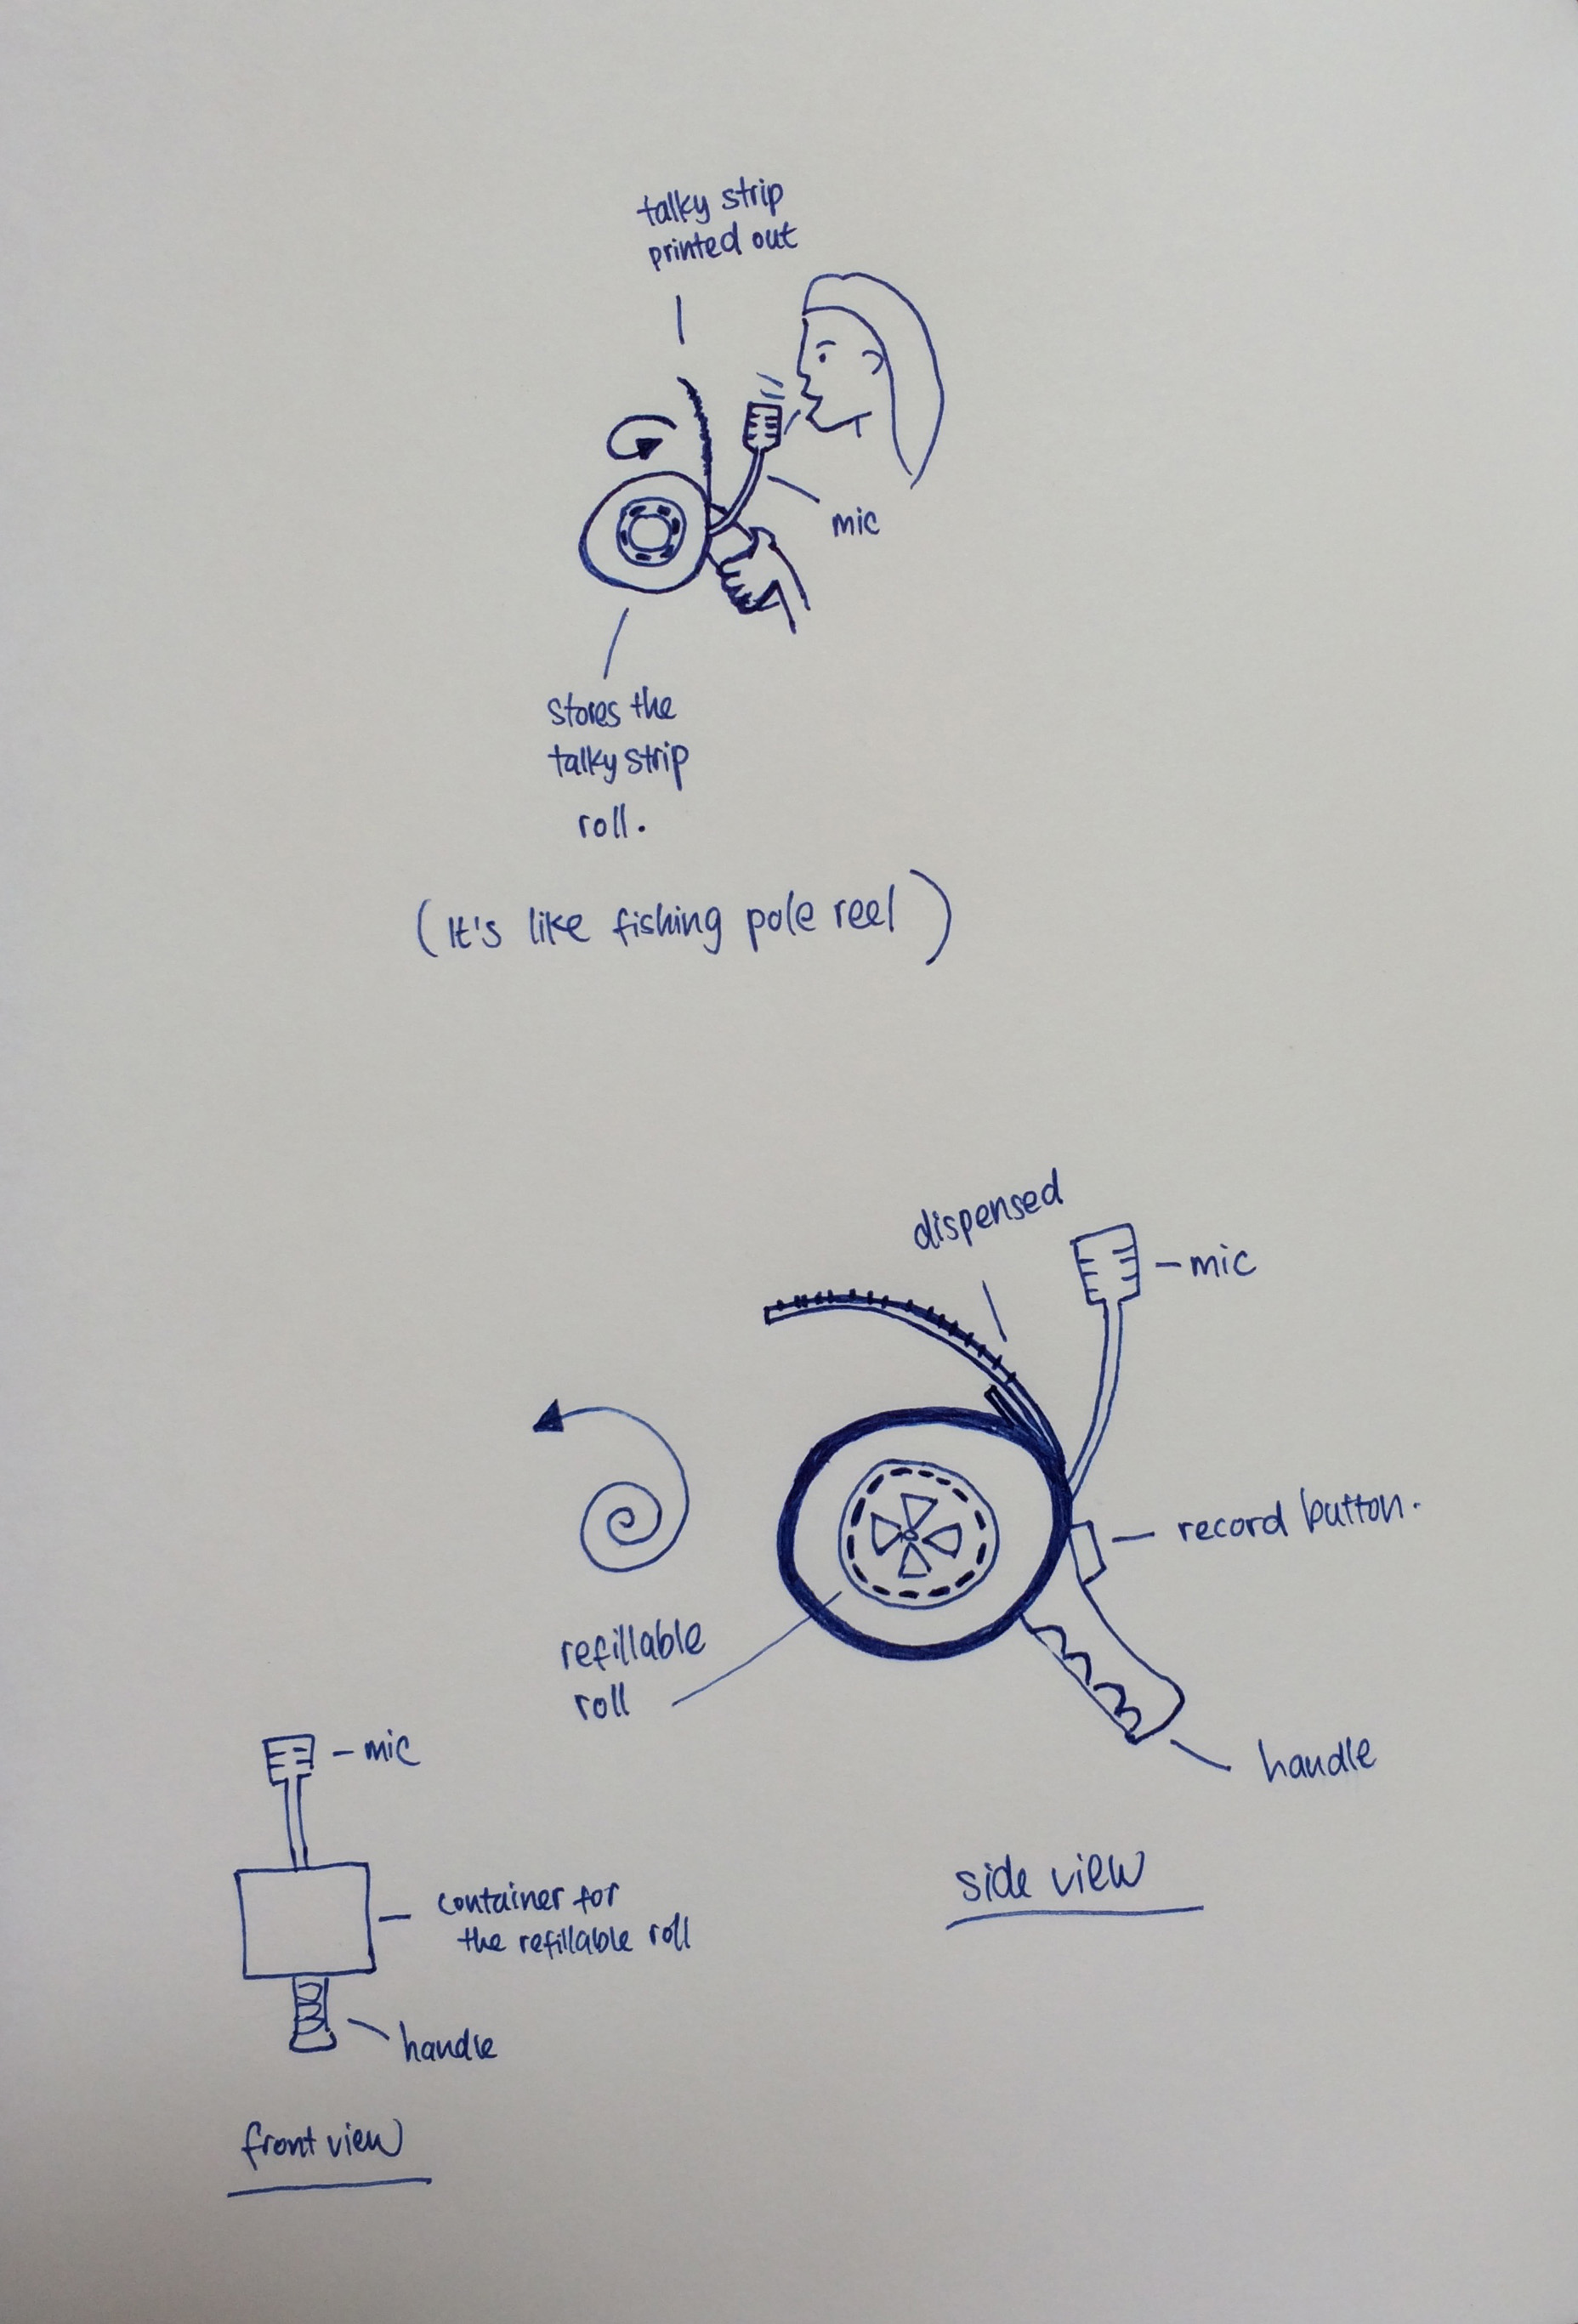 talky strip
printed out
mic
stores the
talky strip
roll.
(It's like fishing pole reel)
dispensed
– mic
record button.
refillable
roll
handle
side view
– mic
container for
the refillable roll
handle
front view